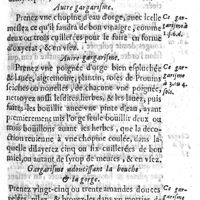 Autre gargarisme.
Prenez vne chopine d'eau d'orge, auec icelle
meslez ce qu'il faudra de bon vinaigre, comme
deux ou trois cuillers pour le faire en forme
d'oxycrat, & en vsez.
Autre gargarisme.
Prenez vne poignée d'orge bien espluchée
& lauée, aigremoine, plantin, roses de Prouins
seiches ou nouuelles, de chacune vne poignée,
nettoyez aussi lesdites herbes, & les lauez, puis
les ferez bouillir en vne pinte d'eau, y ayant
premierement mis l'orge seule bouillir deux ou
trois bouillons auant les herbes, & que le tout
reuienne à vne chopine coulée, dans la-
quelle dilayerez cinq ou six cuillerées de bon
miel, ou autant de syrop de meures, & en vsez.
Gargarisme adoucissant la bouche
& la gorge.
Prenez vingt-cinq ou trente amandes douces
Ce gar-
garisme
Ce gar-
garisme
sols.
Ce gar-
garisme